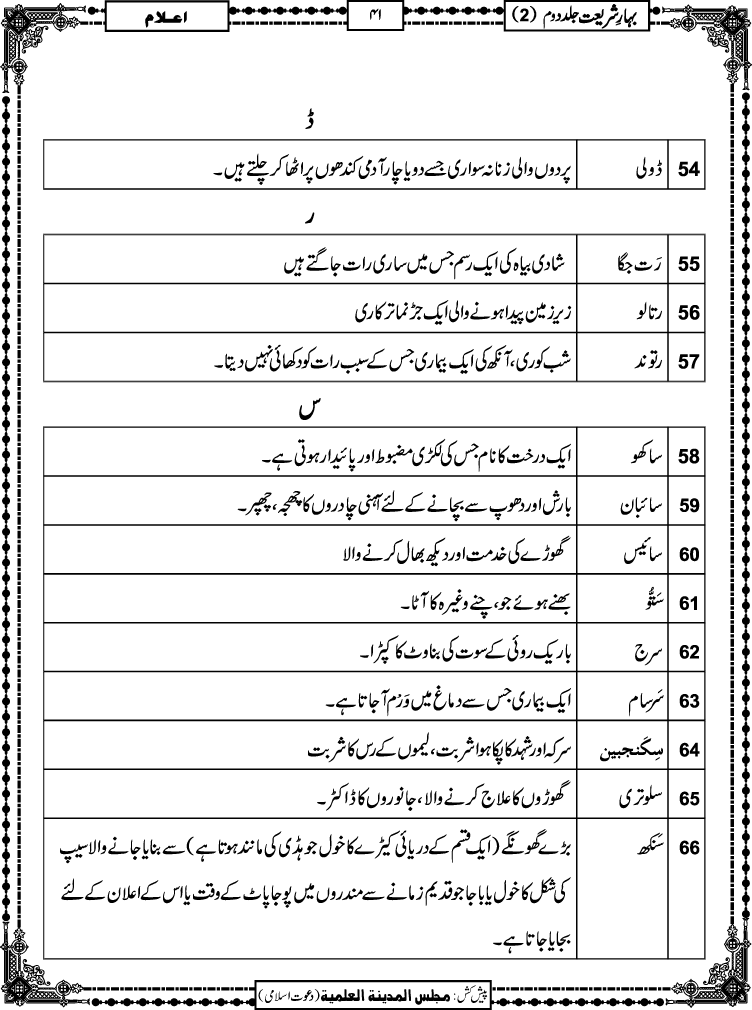 بہارِشریعت جلد دوم (2)
۴۱
اعلام
ڈ
54 ڈولی پردوں والی زنانہ سواری جسے دو یا چار آدمی کندھوں پر اٹھا کر چلتے ہیں۔
ر
55 رَت جگا شادی بیاہ کی ایک رسم جس میں ساری رات جاگتے ہیں
56 رتالو زیرِ زمین پیدا ہونے والی ایک جڑ نما ترکاری
57 رتوند شب کوری، آنکھ کی ایک بیماری جس کے سبب رات کو دکھائی نہیں دیتا۔
س
58 ساکھو ایک درخت کا نام جس کی لکڑی مضبوط اور پائیدار ہوتی ہے۔
59 سائبان بارش اور دھوپ سے بچانے کے لئے آہنی چادروں کا چھجہ، چھپر۔
60 سائیس گھوڑے کی خدمت اور دیکھ بھال کرنے والا
61 سَتُّو بھنے ہوئے جو، چنے وغیرہ کا آٹا۔
62 سرج باریک روئی کے سوت کی بناوٹ کا کپڑا۔
63 سَرسام ایک بیماری جس سے دماغ میں وَرَم آجاتا ہے۔
64 سِکَنجبین سرکہ اور شہد کا پکا ہوا شربت، لیموں کے رس کا شربت
65 سلوتری گھوڑوں کا علاج کرنے والا، جانوروں کا ڈاکٹر۔
66 سَنکھ بڑے گھونگے (ایک قسم کے دریائی کیڑے کا خول جو ہڈی کی مانند ہوتا ہے) سے بنایا جانے والا سیپ
کی شکل کا خول یا باجا جو قدیم زمانے سے مندروں میں پوجا پاٹ کے وقت یا اس کے اعلان کے لئے
بجایا جاتا ہے۔
پیش کش: مجلس المدینة العلمیة (دعوت اسلامی)